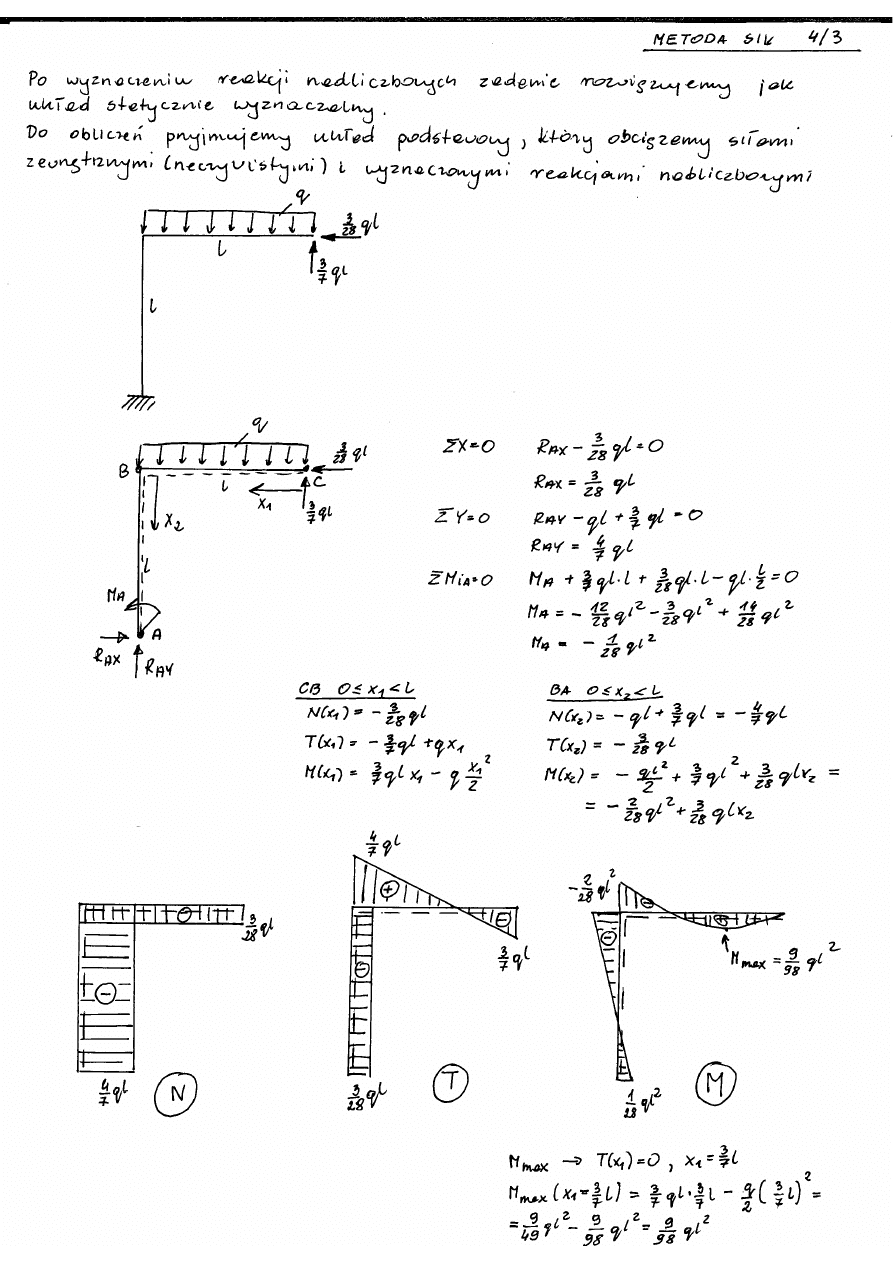 METODA SIŁ 4/3
Po wyznaczeniu reakcji nadliczbowych zadanie rozwiązujemy jak
układ statycznie wyznaczalny.
Do obliczeń przyjmujemy układ podstawowy, który obciążamy siłami
zewnętrznymi (rzeczywistymi) i wyznaczonymi reakcjami nadliczbowymi
q
3/28 ql
l
3/7 ql
l
q
B
3/28 ql
l
C
x1
3/7 ql
x2
l
MA
A
RAX
RAY
ΣX=0 RAX - 3/28 ql = 0
RAX = 3/28 ql
ΣY=0 RAY - ql + 3/7 ql = 0
RAY = 4/7 ql
ΣMiA=0 MA + 3/7 ql·l + 3/28 ql·l - ql·l/2 = 0
MA = - 12/28 ql² - 3/28 ql² + 14/28 ql²
MA = - 1/28 ql²
CB 0≤x1<l
N(x1) = - 3/28 ql
T(x1) = - 3/7 ql + qx1
M(x1) = 3/7 ql x1 - q x1²/2
BA 0≤x2<l
N(x2) = - ql + 3/7 ql = - 4/7 ql
T(x2) = - 3/28 ql
M(x2) = - ql²/2 + 3/7 ql² + 3/28 qlx2 =
= - 2/28 ql² + 3/28 qlx2
3/28 ql
4/7 ql
N
4/7 ql
3/7 ql
3/28 ql
T
-2/28 ql²
Mmax = 9/98 ql²
1/28 ql²
M
Mmax → T(x1)=0, x1 = 3/7 l
Mmax (x1 = 3/7 l) = 3/7 ql · 3/7 l - q/2 (3/7 l)² =
= 9/49 ql² - 9/98 ql² = 9/98 ql²